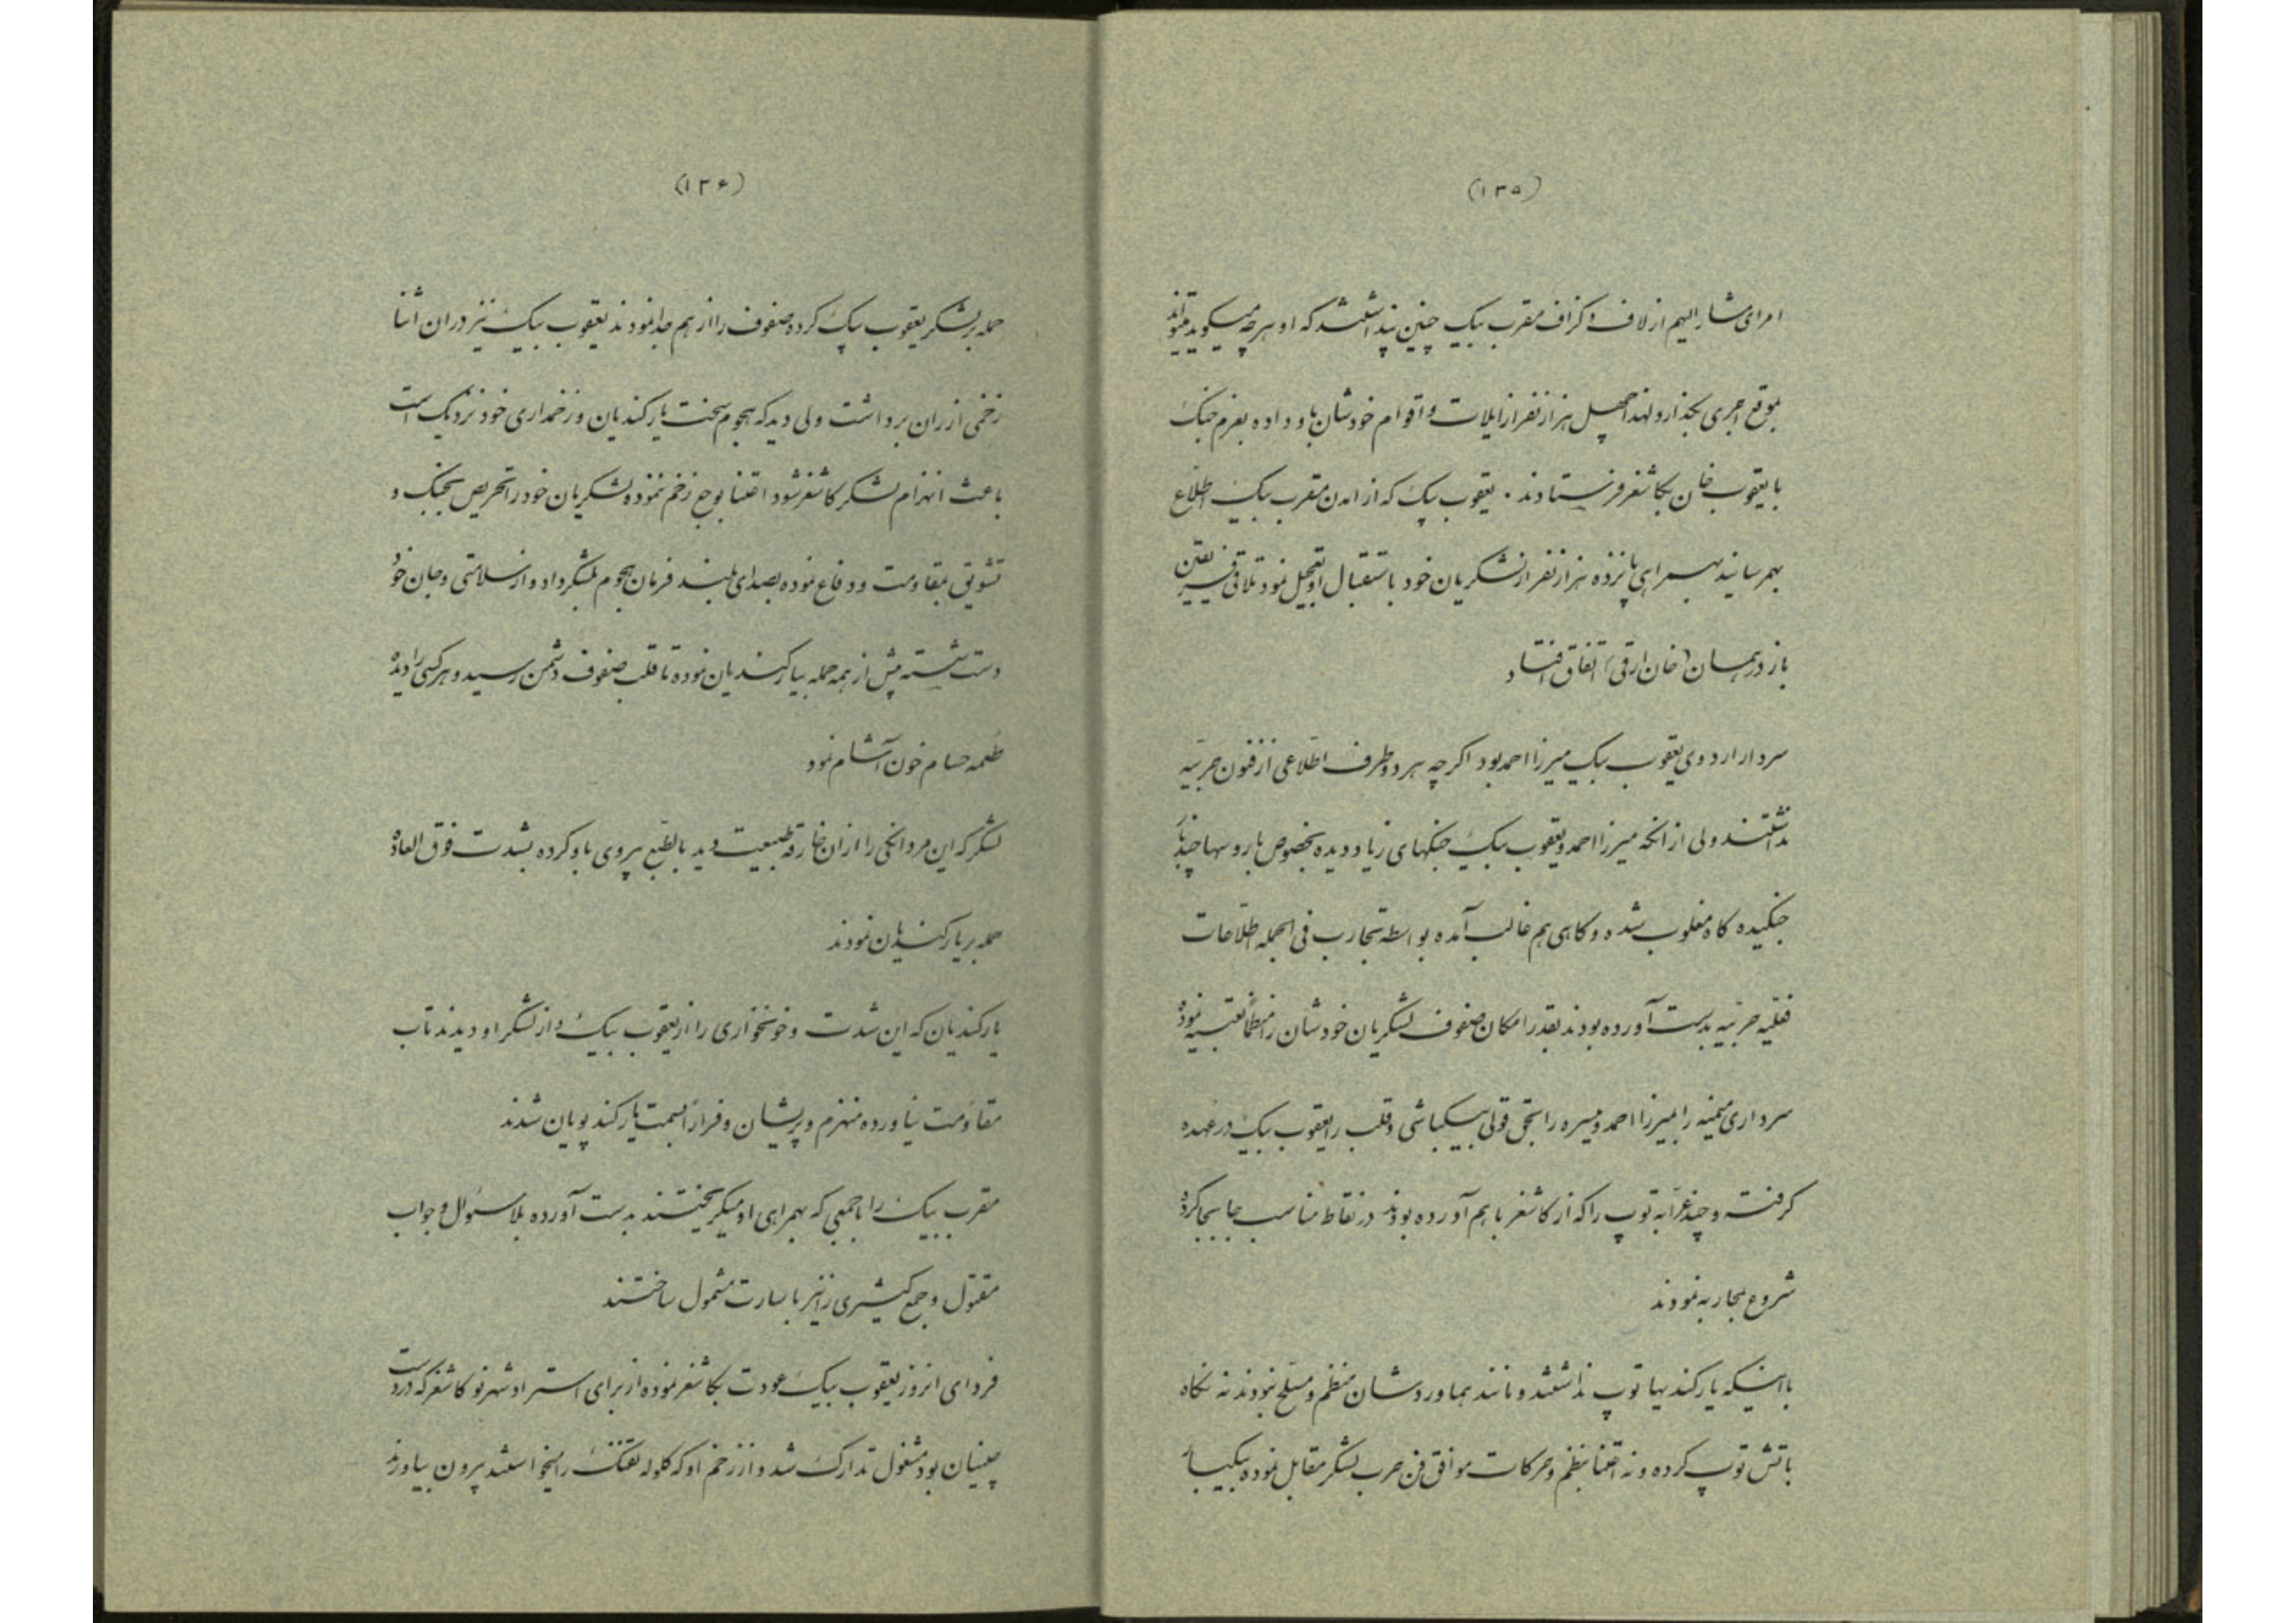 (۱۳۵)
امرای مشار الیهم از لاف و کزاف مقرب بیک چنین پنداشتند که او هرچه میکوید میتواند
بموقع اجری بکذارد لهذا چهل هزار نفر از ایلات و اقوام خودشان باو داده بعزم جنک
با یعقوب خان بکاشغر فرستادند . یعقوب بیک که از امدن مقرب بیک اطلاع
بهمرسانید بهمراهی پانزده هزار نفر از لشکریان خود باستقبال او تعجیل نمود تلاقی فریقین
باز در همان (خان ارقی) اتفاق افتاد
سردار اردوی یعقوب بیک میرزا احمد بود اکرچه هر دو طرف اطلاعی از فنون حربیه
نداشتند ولی از انکه میرزا احمد و یعقوب بیک جنکهای زیاد دیده بخصوص با روسها چندبار
جنکیده کاه مغلوب شده و کاهی هم غالب آمده بواسطه تجارب فی الجمله اطلاعات
فعلیه حربیه بدست آورده بودند بقدر امکان صفوف لشکریان خودشان را منظماً تعبیه نموده
سرداری میمنه را بمیرزا احمد و میسره را بحق قولی بیکباشی و قلب را یعقوب بیک در عهده
کرفت و چند عرابه توپ را که از کاشغر باهم آورده بودند در نقاط مناسب جابجا کرده
شروع بمحاربه نمودند
با اینکه یارکندیها توپ نداشتند و مانند هماوردشان منظم و مسلح نبودند نه نکاه
باتش توپ کرده و نه اعتنا بنظم و حرکات موافق فن حرب لشکر مقابل نموده بیکبار
(۱۳۶)
حمله بر لشکر یعقوب بیک کرده صفوف را از هم جدا نمودند یعقوب بیک نیز در ان اثنا
زخمی از ران برداشت ولی دید که هجوم سخت یارکندیان و زخمداری خود نزدیک است
باعث انهزام لشکر کاشغر شود اعتنا بوجع زخم ننموده لشکریان خود را تحریص بجنک و
تشویق بمقاومت و دفاع نموده بصدای بلند فرمان هجوم بلشکر داد و از سلامتی و جان خود
دست شسته پیش از همه حمله بیارکندیان نموده تا قلب صفوف دشمن رسید و هر کسی را دیده
طعمه حسام خون آشام نمود
لشکر که این مردانکی را از ان خارقه طبیعت دید بالطبع پیروی باو کرده بشدت فوق العاده
حمله بر یارکندیان نمودند
یارکندیان که این شدت و خونخواری را از یعقوب بیک و از لشکر او دیدند تاب
مقاومت نیاورده منهزم و پریشان و فراراً بسمت یارکند پویان شدند
مقرب بیک را با جمعی که بهمراهی او میکریختند بدست آورده بلا سئوال و جواب
مقتول و جمع کثیری را نیز باسارت مشمول ساختند
فردای انروز یعقوب بیک عودت بکاشغر نموده از برای استرداد شهر نو کاشغر که در دست
چینیان بود مشغول تدارک شد و از زخم او که کلوله تفنک را میخواستند بیرون بیاورند